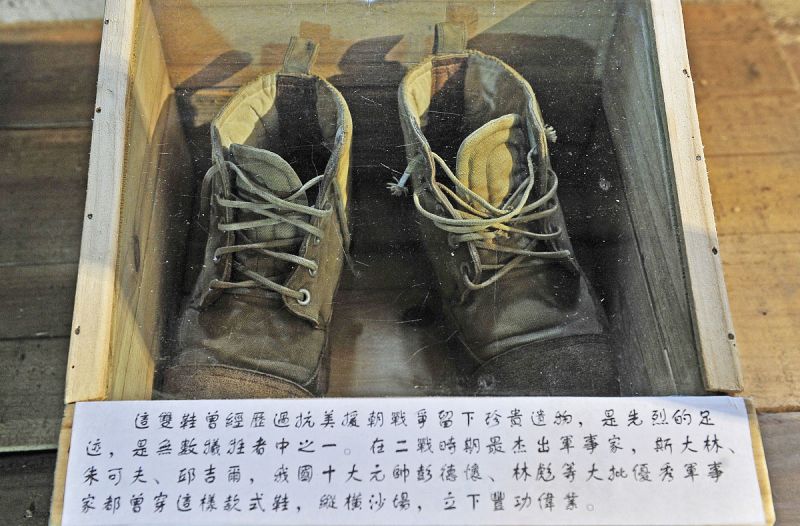 這雙鞋曾經歷過抗美援朝戰爭留下珍貴遺物，是先烈的足
迹，是無數犧牲者中之一。在二戰時期最杰出軍事家，斯大林、
朱可夫、邱吉爾，我國十大元帥彭德懷、林彪等大批優秀軍事
家都曾穿這樣款式鞋，縱橫沙場，立下豐功偉業。